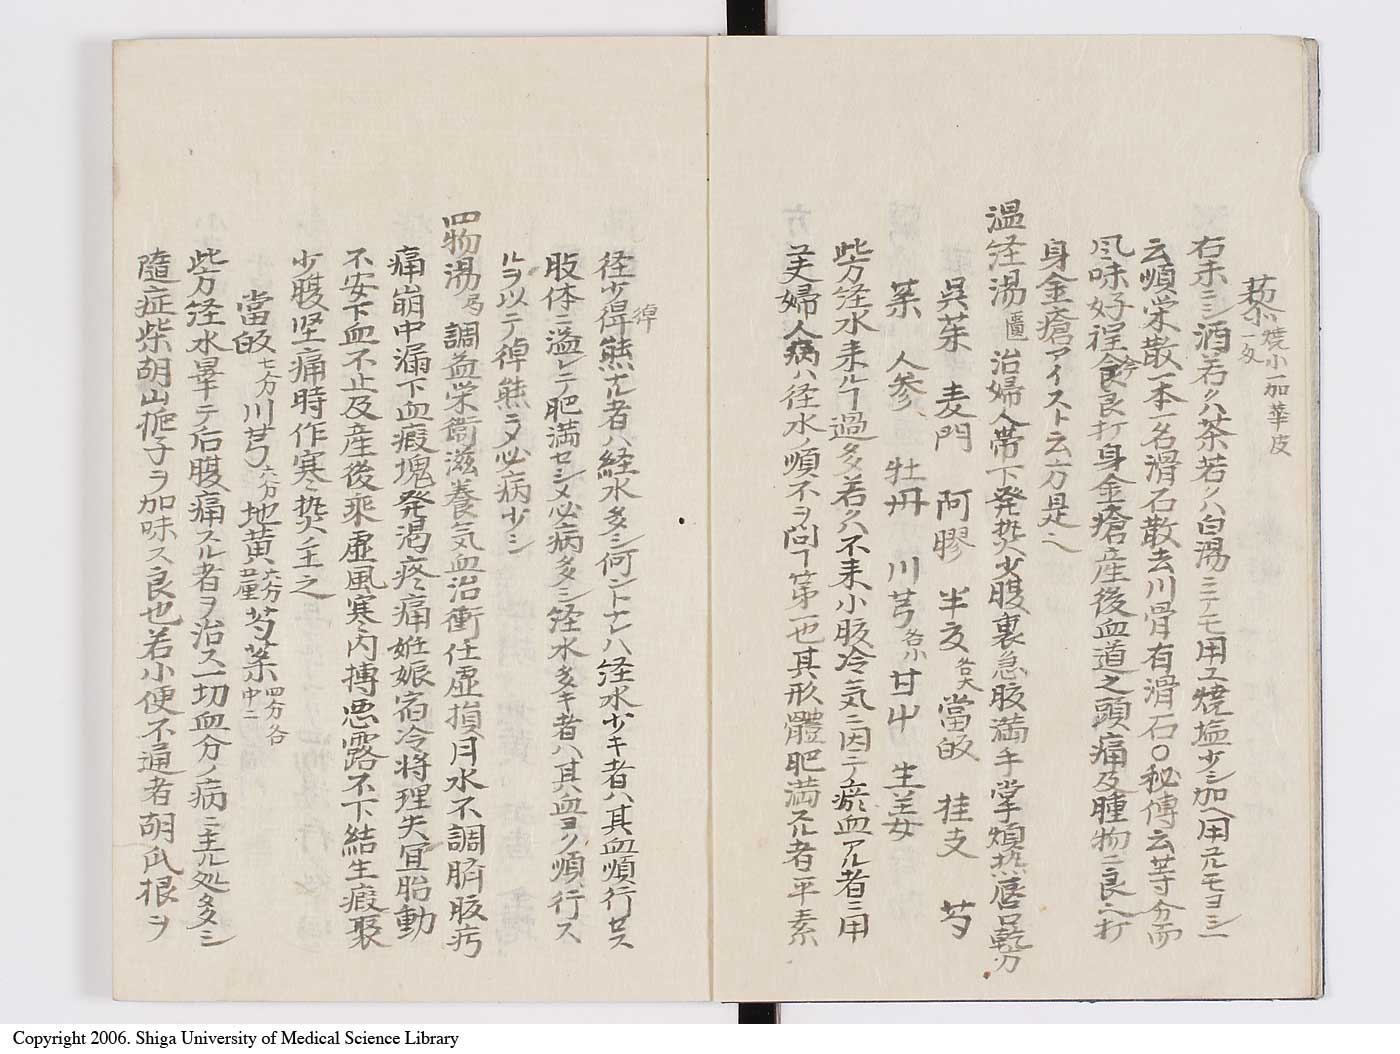 藜小 焼小一加華皮 一処
右末ニシ酒若クハ茶若クハ白湯ニテモ用ユ焼塩少シ加入用尤モヨシ一
云順栄散一本一名滑石散去川骨有滑石〇秘傳云等分而
風味好程合良打身金瘡産後血道之頭痛及腫物ニ良
身金瘡アイスト云方是也
温経湯匱 治婦人帯下発熱少腹裏急腹満手掌煩熱唇口乾方
呉茱 麦門 阿膠 半夏各大 當皈 桂支 芍
薬 人参 牡丹 川芎各小 甘艸 生姜
此方経水来ルヿ過多若クハ不来小腹冷気ニ因テ瘀血アル者ニ用
ユ夫婦人病ハ径水ノ順不ヲ問フヿ第一也其形體肥満スル者平素
径少得熊ナル者ハ経水多シ何ントナレハ経水少キ者ハ其血順行セス
肢体ニ溢レテ肥満セシメ必病多シ経水多キ者ハ其血ヨク順行ス
ルヲ以テ徫熊ラメ必病少シ
四物湯局 調益栄衛滋養気血治衝任虚損月水不調臍腹㽲
痛崩中漏下血瘕塊発渇疼痛姙娠宿冷将理失冝胎動
不安下血不止及産後乘虚風寒内搏悪露不下結生瘕聚
少腹坚痛時作寒熱主之
當皈七分 川芎六分 地黄六分 芍薬四分各中ニ
此方経水畢テ后腹痛スル者ヲ治ス一切血分ノ病ニ主ル処多シ
隨症柴胡山梔子ヲ加味ス良也若小便不通者胡瓜根ヲ
Copyright 2006. Shiga University of Medical Science Library